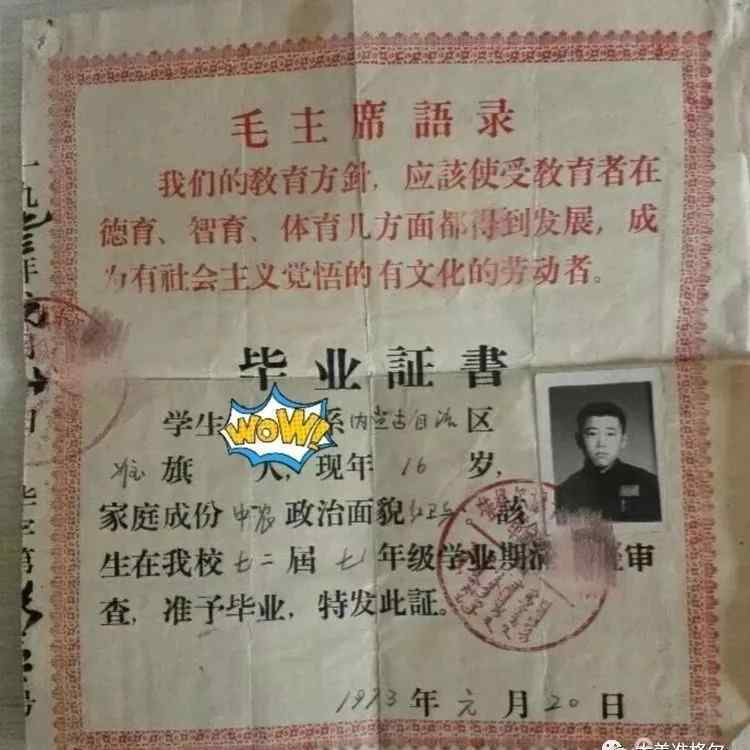 毛主席語录
我们的教育方針，应該使受教育者在
德育、智育、体育几方面都得到发展，成
为有社会主义觉悟的有文化的劳动者。
毕业証書
学生 WOW! 系内蒙古自治区
准旗 人，现年16岁，
家庭成份中农政治面貌红卫兵。該
生在我校七二届七年级学业期满 审
查，准予毕业，特发此証。
1973年元月20日
一九 年 月 日 毕字第 号
大美准格尔